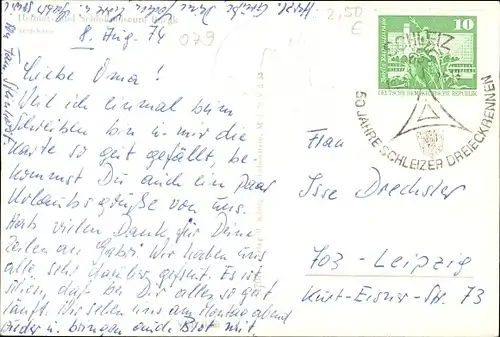 Herzl. Grüße Deine
2,50
€
8. Aug. 74
079
Liebe Oma!
Weil ich einmal beim
Schreiben bin u. mir die
Karte so gut gefällt, be-
kommst Du auch ein paar
Urlaubsgrüße von uns.
Hab vielen Dank für Deine
Zeilen an Gabi. Wir haben uns
alle sehr darüber gefreut. Es ist
schön, daß bei Dir alles so gut
läuft. Wir sehen uns am Montag abend
wieder u. bringen auch Brot mit.
10
DEUTSCHE DEMOKRATISCHE REPUBLIK
SCHLEIZ
50 JAHRE SCHLEIZER DREIECKRENNEN
Frau
Ilse Drechsler
703 - Leipzig
Kurt-Eisner-Str. 73